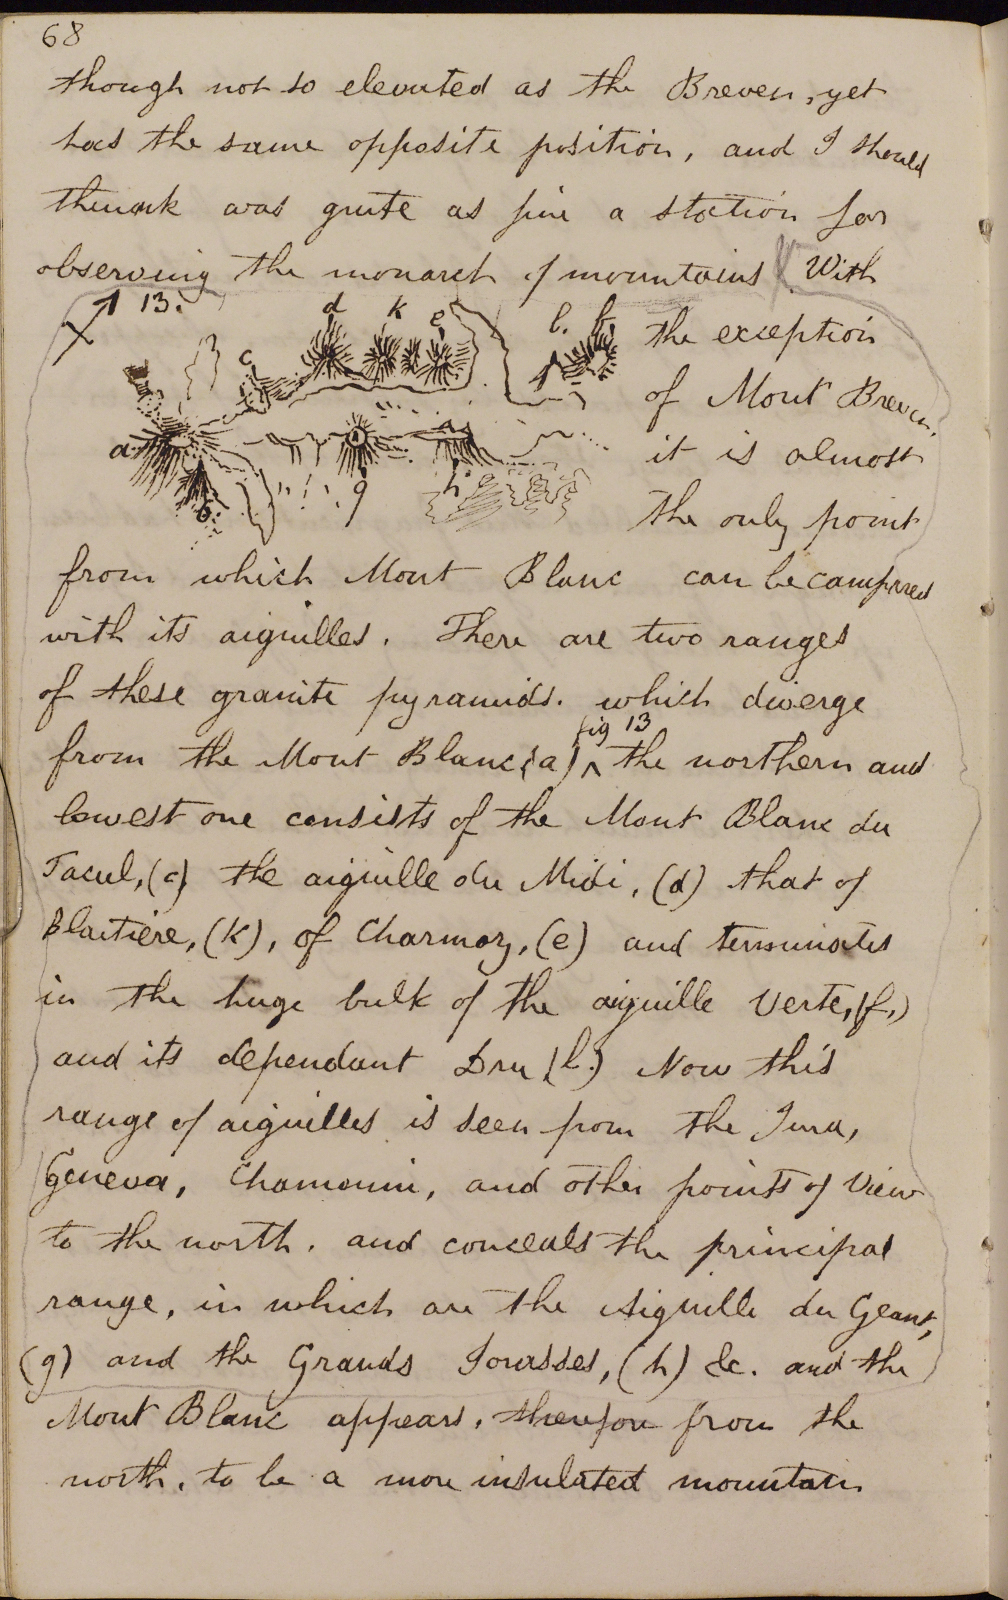 68
though not so elevated as the Breven, yet
has the same opposite position, and I should
think was quite as fine a station for
observing the monarch of mountains With
13.
d k e l. f.
c
a
b
g h
the exception
of Mont Breven,
it is almost
the only point
from which Mont Blanc can be compared
with its aiguilles. There are two ranges
of these granite pyramids. which diverge
fig 13
from the Mont Blanc (a) ^ the northern and
lowest one consists of the Mont Blanc du
Tacul, (c) the aiguille du Midi, (d) that of
Blaitière, (k), of Charmoz, (e) and terminates
in the huge bulk of the aiguille Verte, (f.)
and its dependant Dru (l.) Now this
range of aiguilles is seen from the Jura,
Geneva, Chamouni, and other points of View
to the north. and conceals the principal
range, in which are the Aiguille du Geant,
(g) and the Grands Jorasses, (h) &c. and the
Mont Blanc appears, therefore from the
north, to be a more insulated mountain